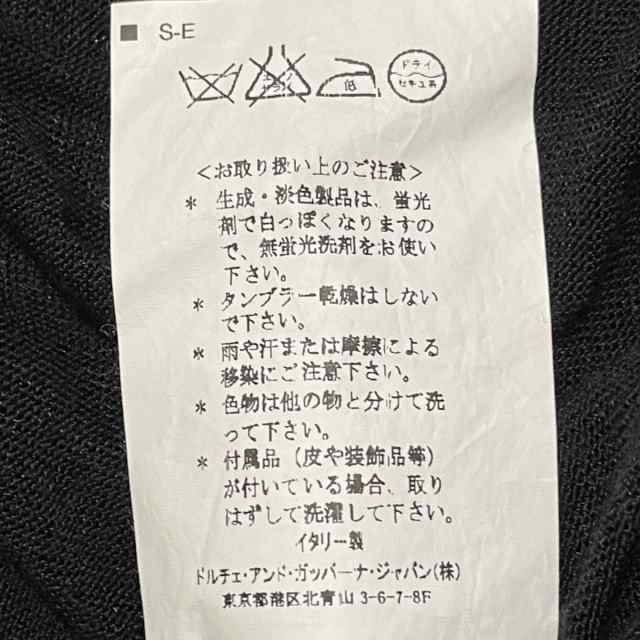 S-E
低
ドライ
セキユ系
<お取り扱い上のご注意>
* 生成・淡色製品は、蛍光
剤で白っぽくなりますの
で、無蛍光洗剤をお使い
下さい。
* タンブラー乾燥はしない
で下さい。
* 雨や汗または摩擦による
移染にご注意下さい。
* 色物は他の物と分けて洗
って下さい。
* 付属品(皮や装飾品等)
が付いている場合、取り
はずして洗濯して下さい。
イタリー製
ドルチェ・アンド・ガッバーナ・ジャパン(株)
東京都港区北青山 3-6-7-8F